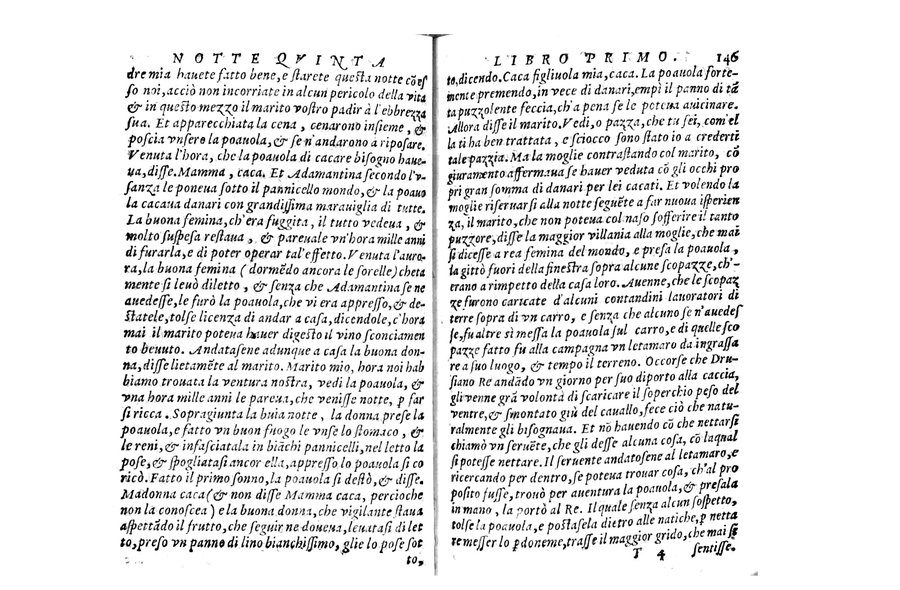 NOTTE QVINTA
dre mia hauete fatto bene, e starete questa notte cō es
so noi, acciò non incorriate in alcun pericolo della vita
& in questo mezzo il marito vostro padir à l'ebbrezza
sua. Et apparecchiata la cena, cenarono insieme, &
poscia vnsero la poauola, & se n'andarono a riposare.
Venuta l'hora, che la poauola di cacare bisogno haue-
ua, disse. Mamma, caca. Et Adamantina secondo l'v-
sanza le poneua sotto il pannicello mondo, & la poauo
la cacaua danari con grandissima marauiglia di tutte.
La buona femina, ch'era fuggita, il tutto vedeua, &
molto suspesa restaua, & pareuale vn'hora mille anni
di furarla, e di poter operar tal'effetto. Venuta l'auro-
ra, la buona femina (dormēdo ancora le sorelle) cheta
mente si leuò di letto, & senza che Adamantina se ne
auedesse, le furò la poauola, che vi era appresso, & de-
statele, tolse licenza di andar a casa, dicendole, c'hora
mai il marito poteua hauer digesto il vino sconciamen
to beuuto. Andatasene adunque a casa la buona don-
na, disse lietamēte al marito. Marito mio, hora noi hab
biamo trouata la ventura nostra, vedi la poauola, &
vna hora mille anni le pareua, che venisse notte, p far
si ricca. Sopragiunta la buia notte, la donna prese la
poauola, e fatto vn buon fuogo le vnse lo stomaco, &
le reni, & infasciatala in biāchi pannicelli, nel letto la
pose, & spogliatasi ancor ella, appresso lo poauola si co
ricò. Fatto il primo sonno, la poauola si destò, & disse.
Madonna caca (& non disse Mamma caca, percioche
non la conoscea) e la buona donna, che vigilante staua
aspettādo il frutto, che seguir ne doueua, leuatasi di let
to, preso vn panno di lino bianchissimo, glie lo pose sot
to,
LIBRO PRIMO. 146
to, dicendo. Caca figliuola mia, caca. La poauola forte-
mente premendo, in vece di danari, empì il panno di tā
ta puzzolente feccia, ch'a pena se le poteua auicinare.
Allora disse il marito. Vedi, o pazza, che tu sei, com'el
la ti ha ben trattata, e sciocco sono stato io a crederti
tale pazzia. Ma la moglie contrastando col marito, cō
giuramento affermaua se hauer veduta cō gli occhi pro
pri gran somma di danari per lei cacati. Et volendo la
moglie riseruarsi alla notte seguēte a far nuoua isperien
za, il marito, che non poteua col naso sofferire il tanto
puzzore, disse la maggior villania alla moglie, che mai
si dicesse a rea femina del mondo, e presa la poauola,
la gittò fuori della finestra sopra alcune scopazze, ch'-
erano a rimpetto della casa loro. Auenne, che le scopaz
ze furono caricate d'alcuni contandini lauoratori di
terre sopra di vn carro, e senza che alcuno se n'auedes
se, fu altre sì messa la poauola sul carro, e di quelle sco
pazze fatto fu alla campagna vn letamaro da ingrassa
re a suo luogo, & tempo il terreno. Occorse che Dru-
siano Re andādo vn giorno per suo diporto alla caccia,
gli venne grā volontà di scaricare il soperchio peso del
ventre, & smontato giù del cauallo, fece ciò che natu-
ralmente gli bisognaua. Et nō hauendo cō che nettarsi
chiamò vn seruēte, che gli desse alcuna cosa, cō la qual
si potesse nettare. Il seruente andatosene al letamaro, e
ricercando per dentro, se poteua trouar cosa, ch'al pro
posito fusse, trouò per auentura la poauola, & presala
in mano, la portò al Re. Il quale senza alcun sospetto,
tolse la poauola, e postasela dietro alle natiche, p netta
re messer lo pdoneme, trasse il maggior grido, che mai si
T 4 sentisse.